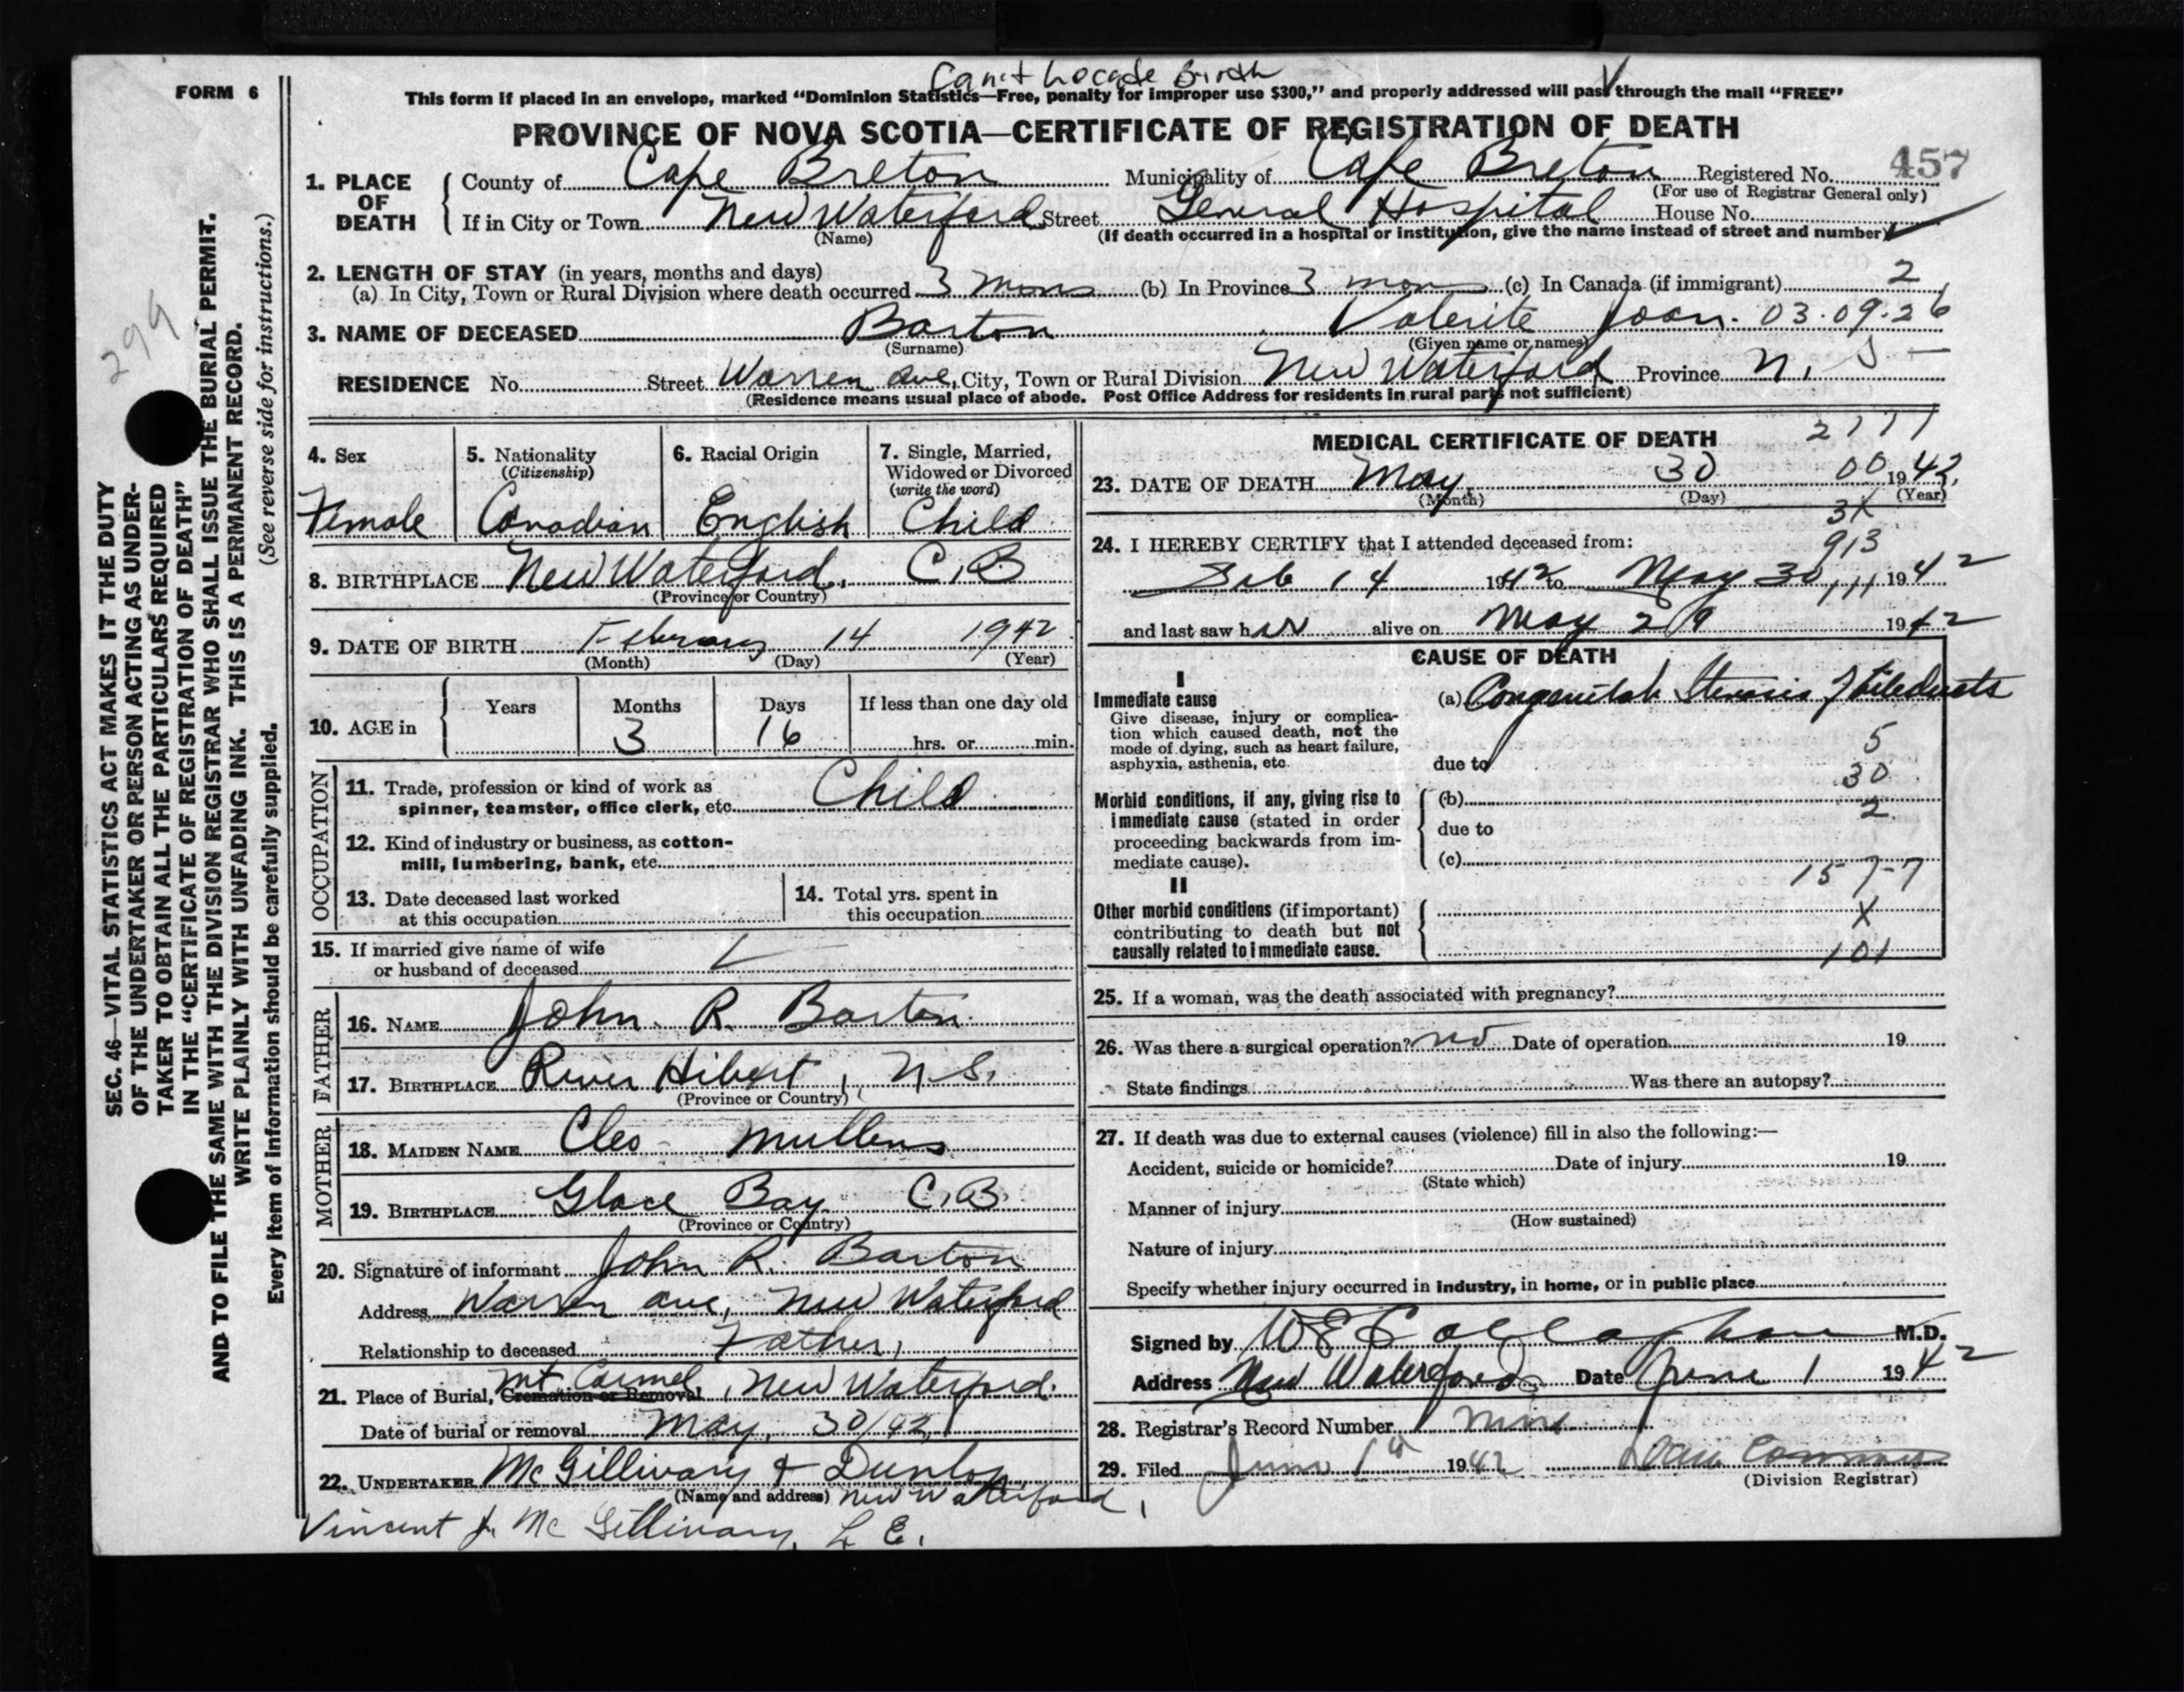 Can't Locate Birth
FORM 6
This form if placed in an envelope, marked “Dominion Statistics—Free, penalty for improper use $300,” and properly addressed will pass through the mail “FREE”
PROVINCE OF NOVA SCOTIA—CERTIFICATE OF REGISTRATION OF DEATH
457
1. PLACE OF DEATH County of Cape Breton Municipality of Cape Breton Registered No.
(For use of Registrar General only)
If in City or Town New Waterford Street General Hospital House No.
(Name) (If death occurred in a hospital or institution, give the name instead of street and number)
2. LENGTH OF STAY (in years, months and days)
(a) In City, Town or Rural Division where death occurred 3 mons (b) In Province 3 mons (c) In Canada (if immigrant) 2
3. NAME OF DECEASED Barton Valerite Joan. 03.09.26
(Surname) (Given name or names)
RESIDENCE No. Street Warren Ave, City, Town or Rural Division New Waterford Province N. S
(Residence means usual place of abode. Post Office Address for residents in rural parts not sufficient)
4. Sex 5. Nationality (Citizenship) 6. Racial Origin 7. Single, Married, Widowed or Divorced (write the word)
Female Canadian English Child
8. BIRTHPLACE New Waterford, C.B
(Province or Country)
9. DATE OF BIRTH February 14 1942
(Month) (Day) (Year)
10. AGE in Years Months Days If less than one day old
3 16 hrs. or min.
OCCUPATION
11. Trade, profession or kind of work as spinner, teamster, office clerk, etc. Child
12. Kind of industry or business, as cotton-
mill, lumbering, bank, etc.
13. Date deceased last worked at this occupation
14. Total yrs. spent in this occupation
15. If married give name of wife
or husband of deceased
FATHER
16. NAME John R. Barton
17. BIRTHPLACE River Hibert, N.S.
(Province or Country)
MOTHER
18. MAIDEN NAME Cleo Mullens
19. BIRTHPLACE Glace Bay C.B.
(Province or Country)
20. Signature of informant John R. Barton
Address Warren ave, New Waterford
Relationship to deceased Father
21. Place of Burial, Cremation or Removal Mt Carmel, New Waterford.
Date of burial or removal May, 30/42
22. UNDERTAKER McGillivary & Dunlop
(Name and address) New Waterford,
Vincent J. McGillivary, L E.
MEDICAL CERTIFICATE OF DEATH 2777
23. DATE OF DEATH May 30 00 1942
(Month) (Day) (Year)
3X
24. I HEREBY CERTIFY that I attended deceased from: 913
Feb 14 1942 to May 30 111 1942
and last saw her alive on May 29 1942
CAUSE OF DEATH
I
Immediate cause (a) Congenital Stenosis
Give disease, injury or complica-
tion which caused death, not the
mode of dying, such as heart failure,
asphyxia, asthenia, etc. due to 5
30
Morbid conditions, if any, giving rise to (b)
2
immediate cause (stated in order due to
proceeding backwards from im-
mediate cause). (c)
157-7
II
Other morbid conditions (if important) X
contributing to death but not
causally related to immediate cause. 101
25. If a woman, was the death associated with pregnancy?
26. Was there a surgical operation? no Date of operation 19
State findings Was there an autopsy?
27. If death was due to external causes (violence) fill in also the following:—
Accident, suicide or homicide? Date of injury 19
(State which)
Manner of injury
(How sustained)
Nature of injury
Specify whether injury occurred in industry, in home, or in public place
Signed by W E Callaghan M.D.
Address New Waterford Date June 1 1942
28. Registrar's Record Number
29. Filed June 1st 1942
(Division Registrar)
299
SEC. 46—VITAL STATISTICS ACT MAKES IT THE DUTY
OF THE UNDERTAKER OR PERSON ACTING AS UNDER-
TAKER TO OBTAIN ALL THE PARTICULARS REQUIRED
IN THE “CERTIFICATE OF REGISTRATION OF DEATH”
AND TO FILE THE SAME WITH THE DIVISION REGISTRAR WHO SHALL ISSUE THE BURIAL PERMIT.
WRITE PLAINLY WITH UNFADING INK. THIS IS A PERMANENT RECORD.
(See reverse side for instructions.)
Every item of information should be carefully supplied.